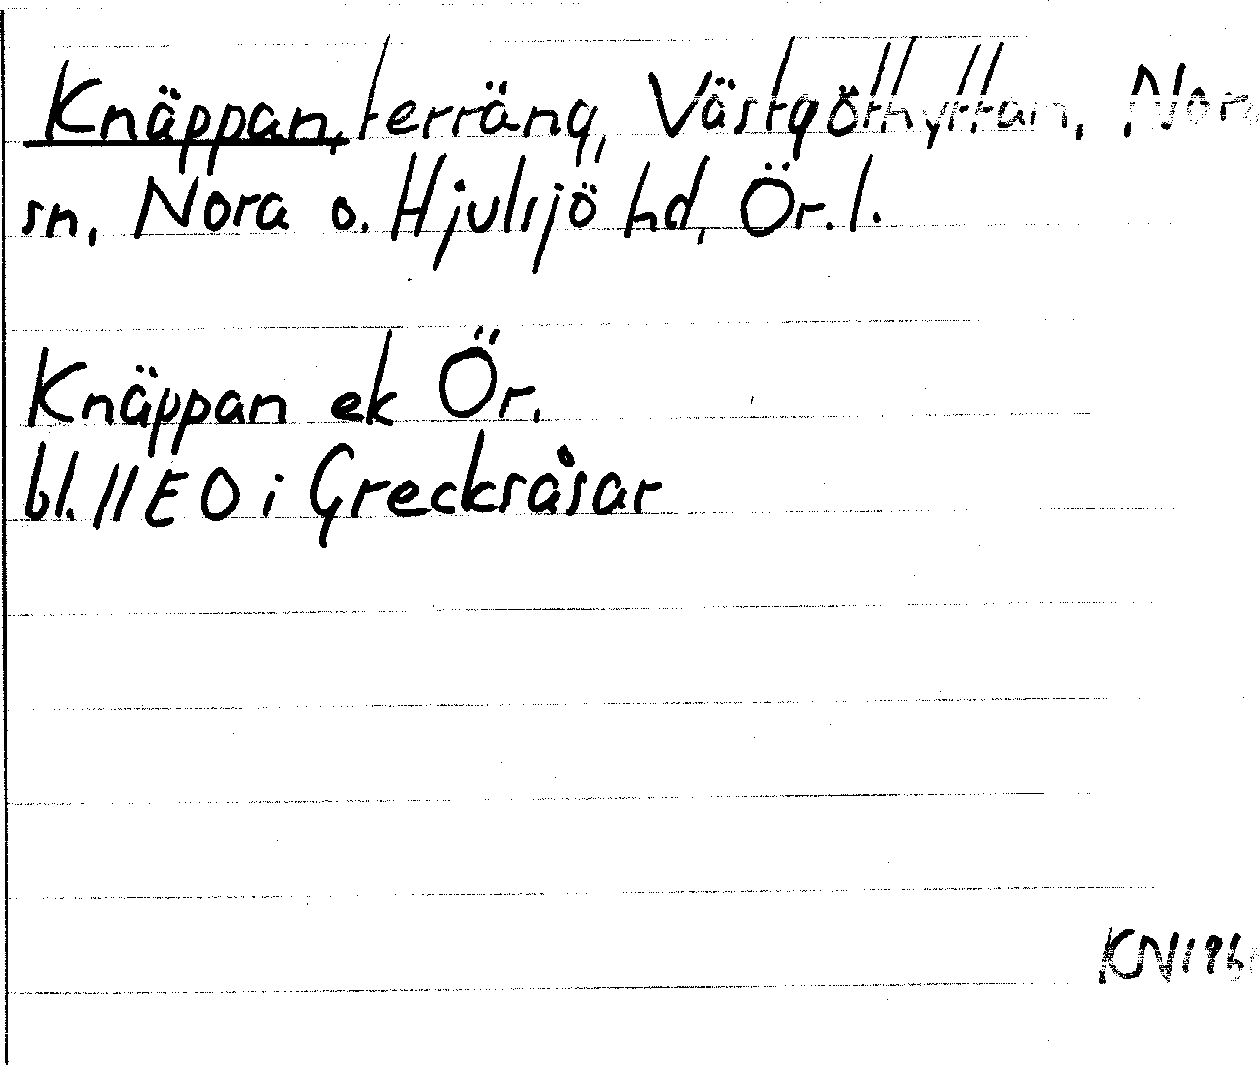 Knäppan, terräng, Västgöthyttan, Nora
sn, Nora o. Hjulsjö hd, Ör. l.
Knäppan ek Ör.
bl. 11 E O i Grecksåsar